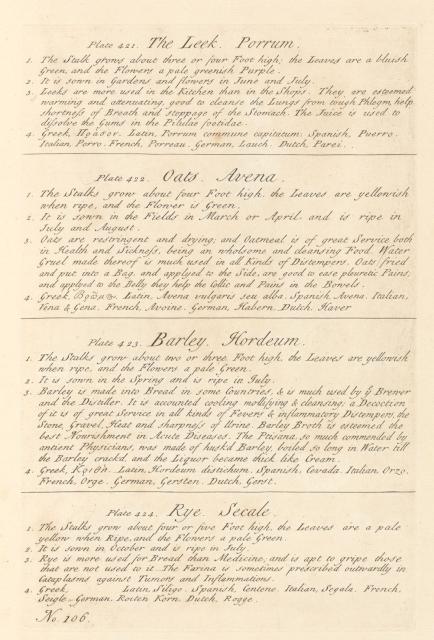 Plate 421. The Leek. Porrum.
1. The Stalk grows about three or four Foot high; the Leaves are a bluish
Green, and the Flowers a pale greenish Purple.
2. It is sown in Gardens and flowers in June and July.
3. Leeks are more used in the Kitchen than in the Shops. They are esteemed
warming and attenuating, good to cleanse the Lungs from tough Phlegm, help
shortness of Breath and stoppage of the Stomach. The Juice is used to
dissolve the Gums in the Pilulae foetidae.
4. Greek, Latin, Porrum commune capitatum. Spanish, Puerro.
Italian, Porro. French, Porreau. German, Lauch. Dutch, Parei.
Plate 422. Oats. Avena.
1. The Stalks grow about four Foot high, the Leaves are yellowish
when ripe, and the Flower is Green.
2. It is sown in the Fields in March or April, and is ripe in
July and August.
3. Oats are restringent and drying; and Oatmeal is of great Service both
in Health and Sickness, being an wholsome and cleansing Food. Water
Gruel made thereof is much used in all Kinds of Distempers. Oats fried
and put into a Bag, and applyed to the Side, are good to ease pleuretic Pains,
and applyed to the Belly they help the Collic and Pains in the Bowels.
4. Greek, Latin, Avena vulgaris seu alba. Spanish, Avena. Italian,
Vena & Gena. French, Avoine. German, Habern. Dutch, Haver.
Plate 423. Barley. Hordeum.
1. The Stalks grow about two or three Foot high, the Leaves are yellowish
when ripe, and the Flowers a pale Green.
2. It is sown in the Spring and is ripe in July.
3. Barley is made into Bread in some Countries, & is much used by ye Brewer
and the Distiller. It is accounted cooling mollifying & cleansing; a Decoction
of it is of great Service in all kinds of Fevers & inflammatory Distempers, the
Stone, Gravel, Heat and sharpness of Urine. Barley Broth is esteemed the
best Nourishment in Acute Diseases. The Ptisana, so much commended by
antient Physicians, was made of husk'd Barley, boiled so long in Water till
the Barley crack'd, and the Liquor became thick like Cream.
4. Greek, Κριθή. Latin, Hordeum distichum. Spanish, Cevada. Italian, Orzo.
French, Orge. German, Gersten. Dutch, Gerst.
Plate 424. Rye. Secale.
1. The Stalks grow about four or five Foot high, the Leaves are a pale
yellow when Ripe, and the Flowers a pale Green.
2. It is sown in October and is ripe in July.
3. Rye is more used for Bread than Medicine, and is apt to gripe those
that are not used to it. The Farina is sometimes prescribed outwardly in
Cataplasms against Tumors and Inflammations.
4. Greek, Latin, Siligo. Spanish, Centeno. Italian, Segala. French,
Seigle. German, Rocken Korn. Dutch, Rogge.
No. 106.